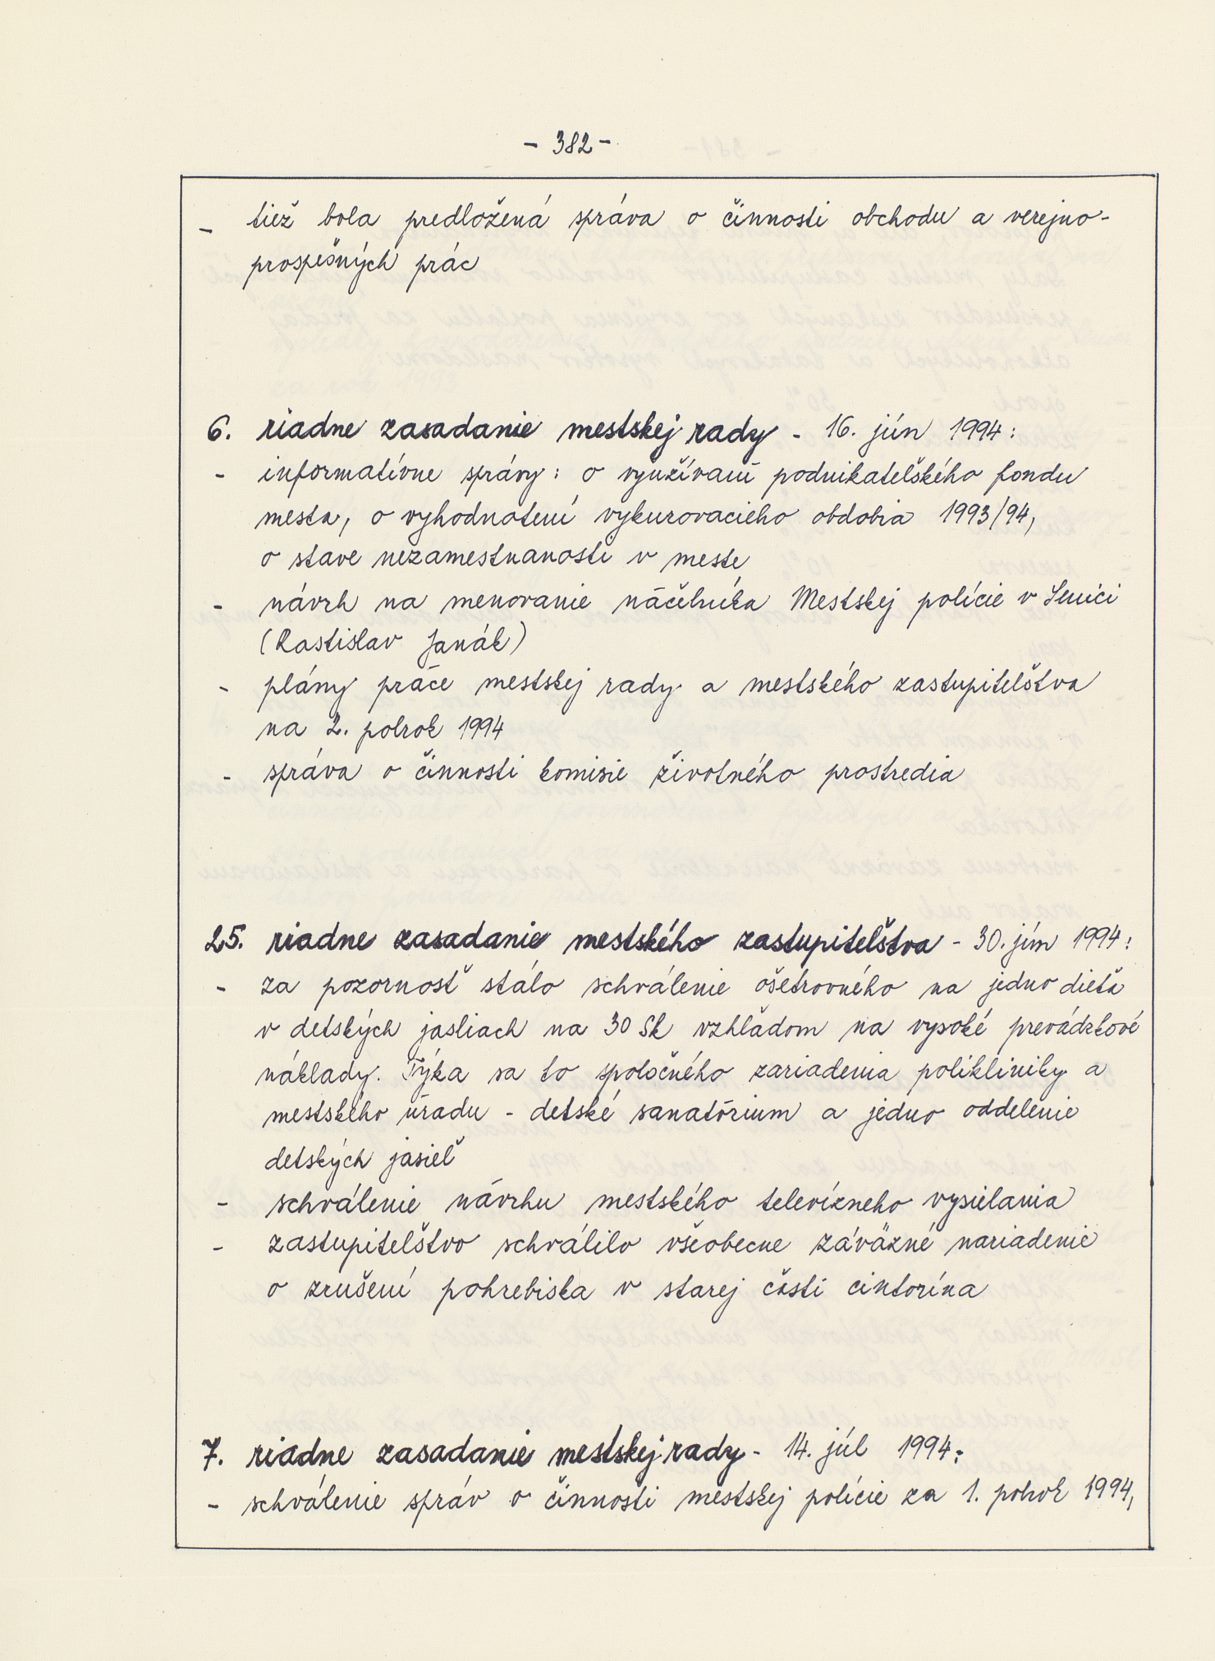 - 382 -
- tiež bola predložená správa o činnosti obchodu a verejno-
prospešných prác
6. riadne zasadanie mestskej rady - 16. jún 1994:
- informatívne správy: o využívaní podnikateľského fondu
mesta, o vyhodnotení vykurovacieho obdobia 1993/94,
o stave nezamestnanosti v meste
- návrh na menovanie náčelníka Mestskej polície v Senici
(Rastislav Janák)
- plány práce mestskej rady a mestského zastupiteľstva
na 2. polrok 1994
- správa o činnosti komisie životného prostredia
25. riadne zasadanie mestského zastupiteľstva - 30. jún 1994:
- za pozornosť stálo schválenie ošetrovného na jedno dieťa
v detských jasliach na 30 Sk vzhľadom na vysoké prevádzkové
náklady. Týka sa to spoločného zariadenia polikliniky a
mestského úradu - detské sanatórium a jedno oddelenie
detských jasieľ
- schválenie návrhu mestského televízneho vysielania
- zastupiteľstvo schválilo všeobecne záväzné nariadenie
o zrušení pohrebiska v starej časti cintorína
7. riadne zasadanie mestskej rady - 14. júl 1994:
- schválenie správ o činnosti mestskej polície za 1. polrok 1994,